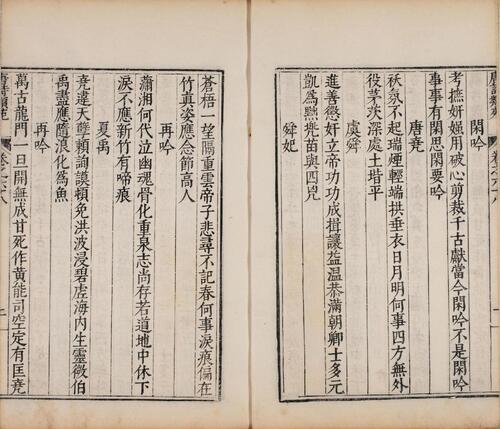 閑吟
考撫妍媸用破心剪裁千古獻當今閑吟不是閑吟
事事有閑思閑要吟
唐堯
祅氛不起瑞煙輕端拱垂衣日月明何事四方無外
役茅茨深處土堦平
虞舜
進善懲奸立帝功功成揖讓益温恭滿朝卿士多元
凱爲黜兠苗與四㓙
舜妃
蒼梧一望隔重雲帝子悲尋不記春何事淚痕偏在
竹貞姿應念節高人
再吟
瀟湘何代泣幽魂骨化重泉志尚存若道地中休下
淚不應新竹有啼痕
夏禹
堯違天孽賴詢謨頓免洪波浸碧虗海内生靈微伯
禹盡應隨浪化爲魚
再吟
萬古龍門一旦開無成甘死作黄能司空定有匡堯